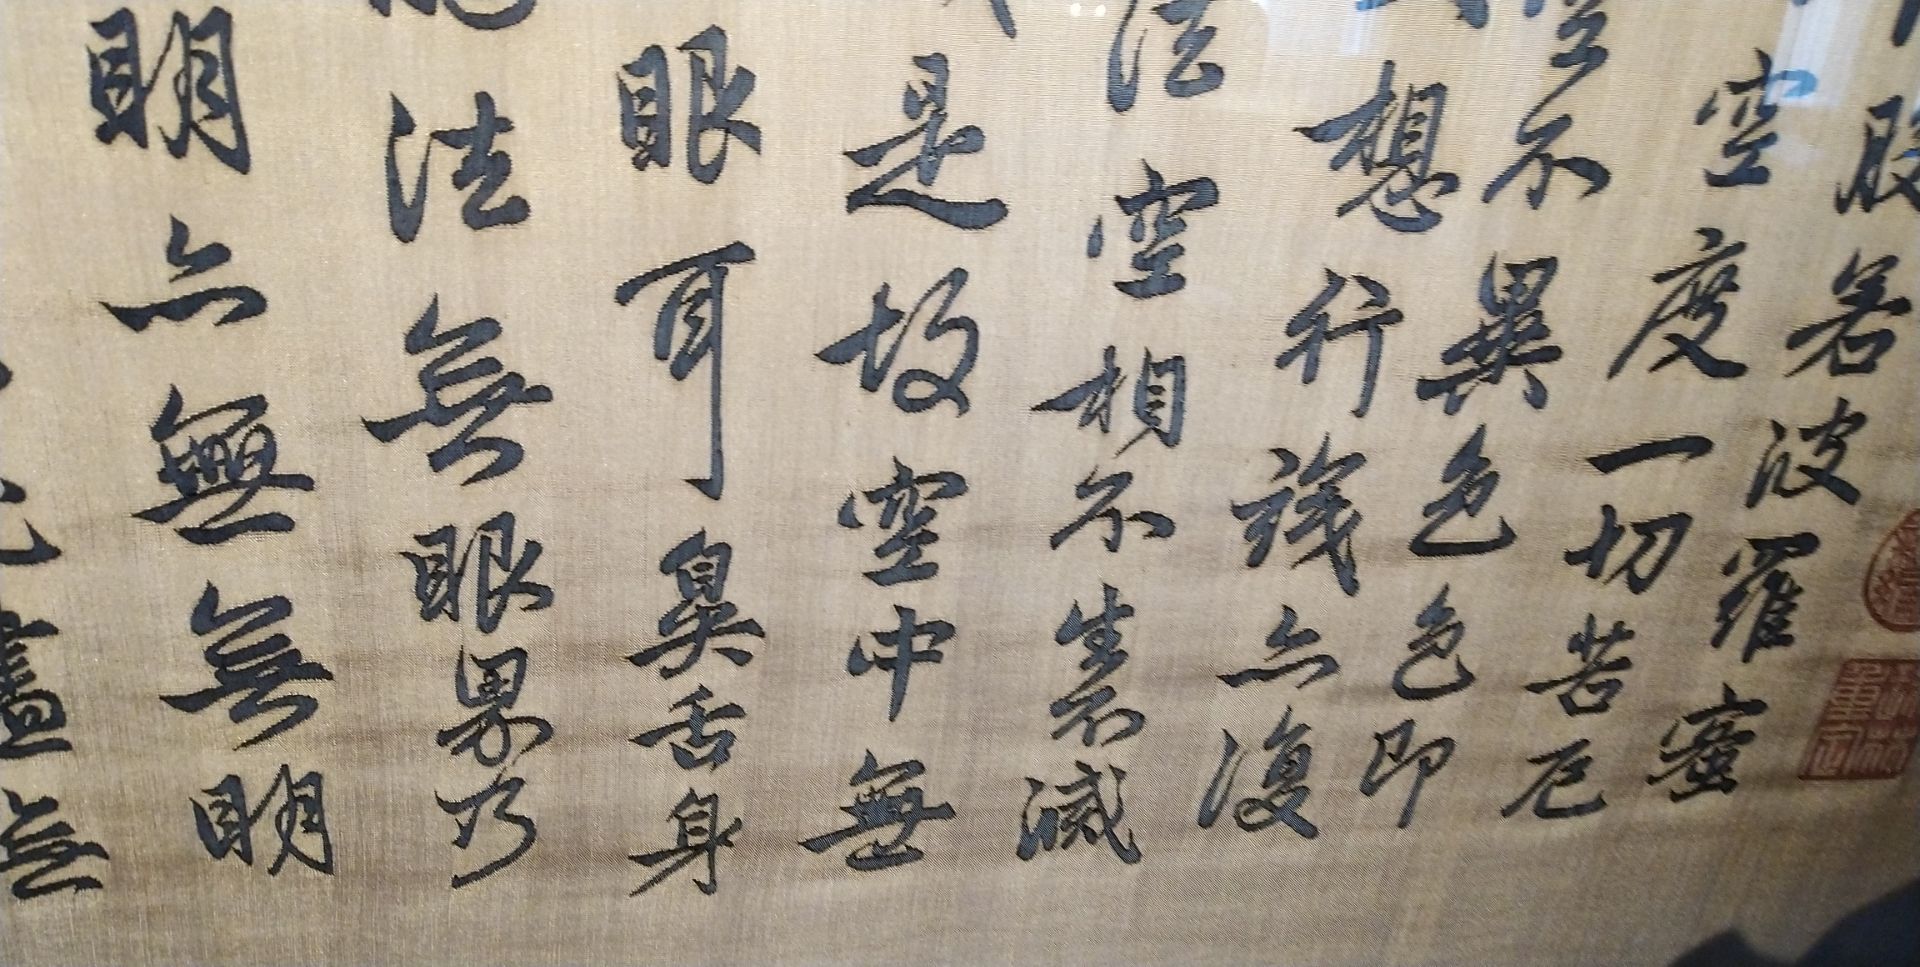 般若波羅蜜
空度一切苦厄
空不異色色即
想行識亦復
法空相不生不滅
是故空中無
眼耳鼻舌身
法無眼界乃
明亦無無明
盡無